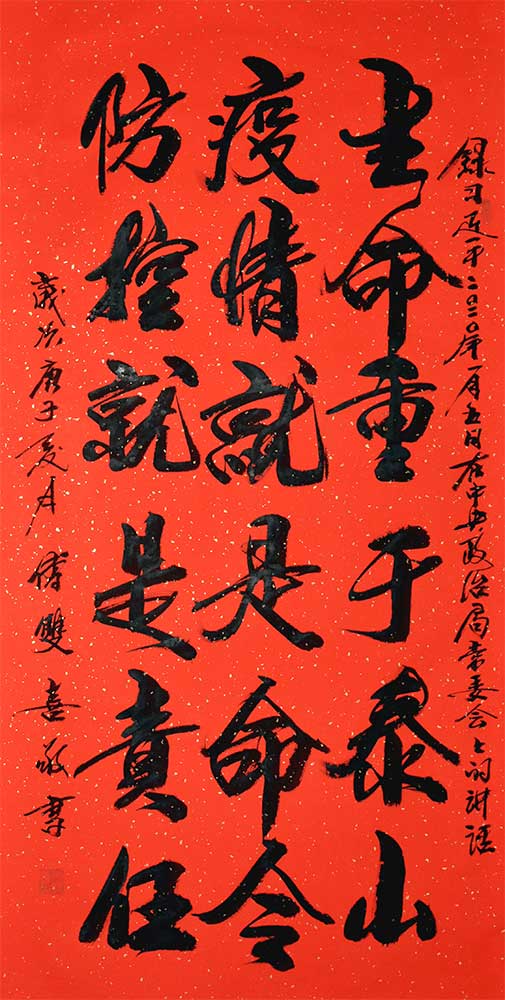 錄习近平二〇二〇年一月五日在中央政治局常委会上的讲話
生命重于泰山
疫情就是命令
防控就是責任
歲次庚子夏月傅雙喜敬書